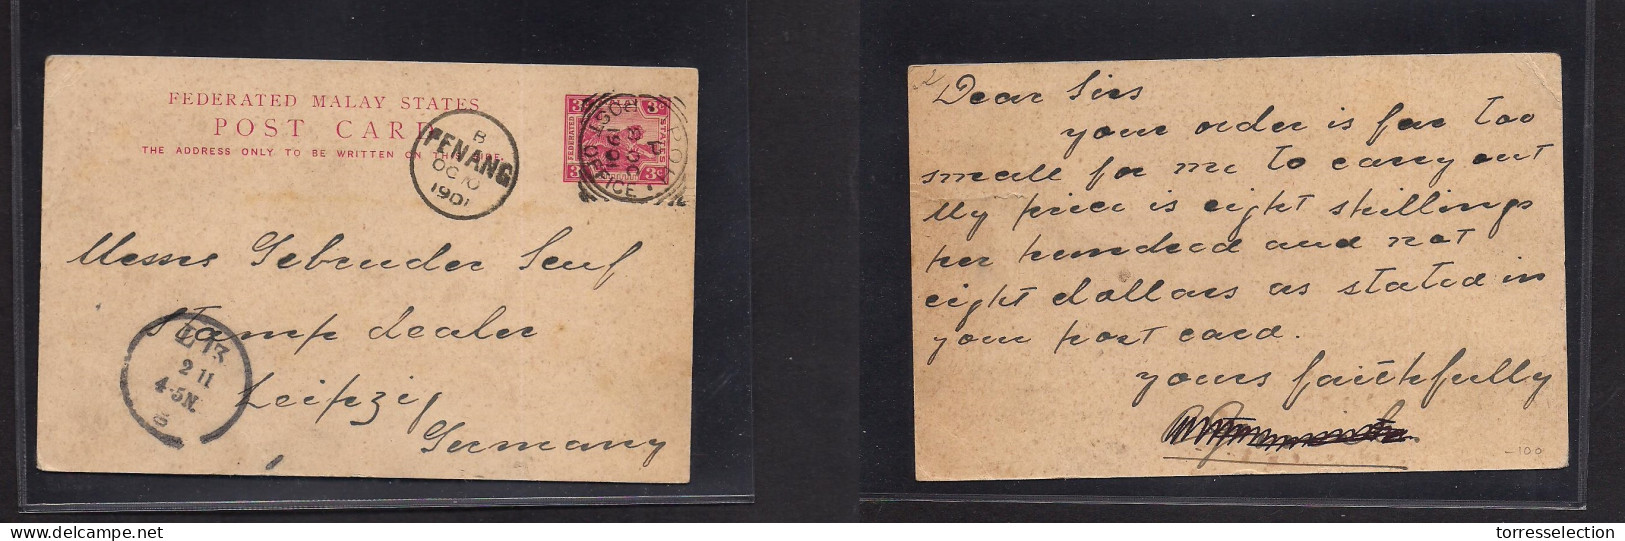 FEDERATED MALAY STATES
POST CARD
THE ADDRESS ONLY TO BE WRITTEN ON THIS SIDE.
3c 3c
FEDERATED STATES
3c 3c
POST OFFICE
1901
B
PENANG
OC 10
1901
Messrs Gebruder Senf
Stamp dealer
Leipzig
Germany
2 11
4-5N.
Dear Sirs
your order is far too
small for me to carry out
My price is eight shillings
per hundred and not
eight dollars as stated in
your post card.
yours faithfully
-100
torresselection